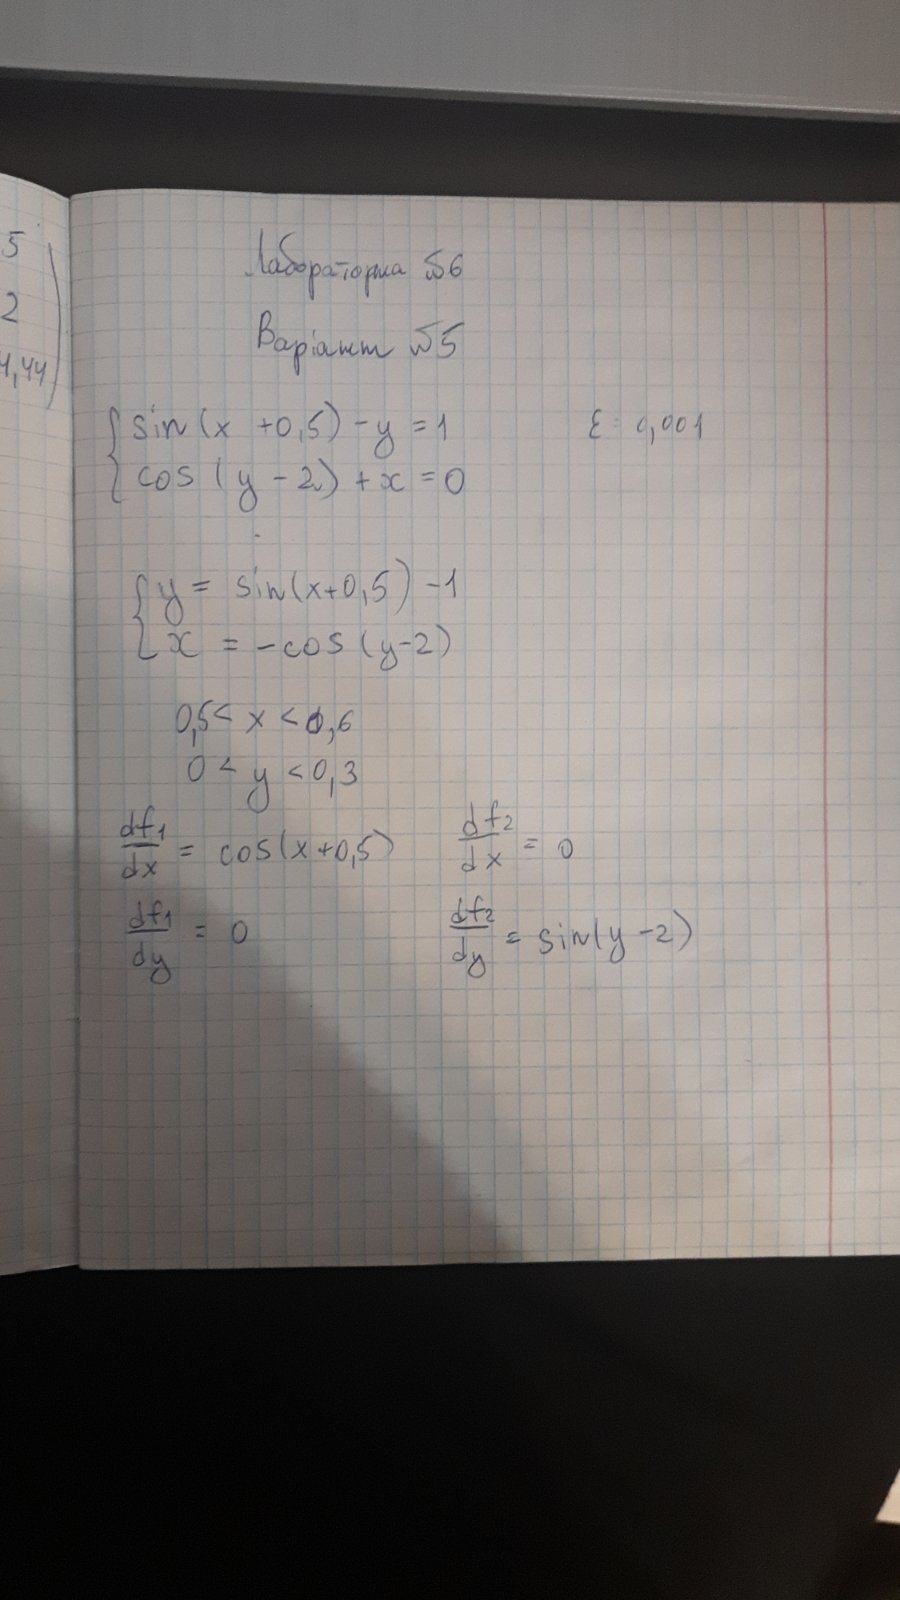 5
2
4,44
Лабораторна №6
Варіант №5
sin(x +0,5) - y = 1
ε = 0,001
cos (y - 2) + x = 0
y = sin(x+0,5) -1
x = -cos (y-2)
0,5 < x < 0,6
0 < y < 0,3
df1/dx = cos(x+0,5)
df2/dx = 0
df1/dy = 0
df2/dy = sin(y-2)